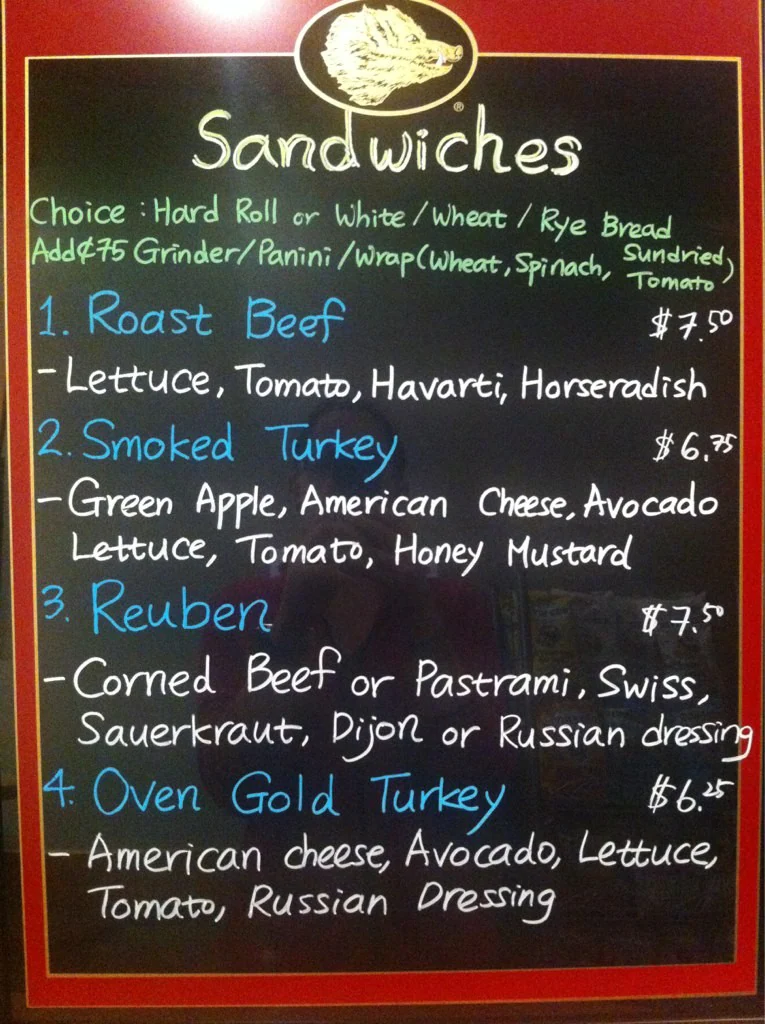 ®
Sandwiches
Choice : Hard Roll or White / Wheat / Rye Bread
Add ¢75 Grinder / Panini / Wrap (Wheat, Spinach, Sundried Tomato)
1. Roast Beef $7.50
- Lettuce, Tomato, Havarti, Horseradish
2. Smoked Turkey $6.75
- Green Apple, American Cheese, Avocado
Lettuce, Tomato, Honey Mustard
3. Reuben $7.50
- Corned Beef or Pastrami, Swiss,
Sauerkraut, Dijon or Russian dressing
4. Oven Gold Turkey $6.25
- American cheese, Avocado, Lettuce,
Tomato, Russian Dressing